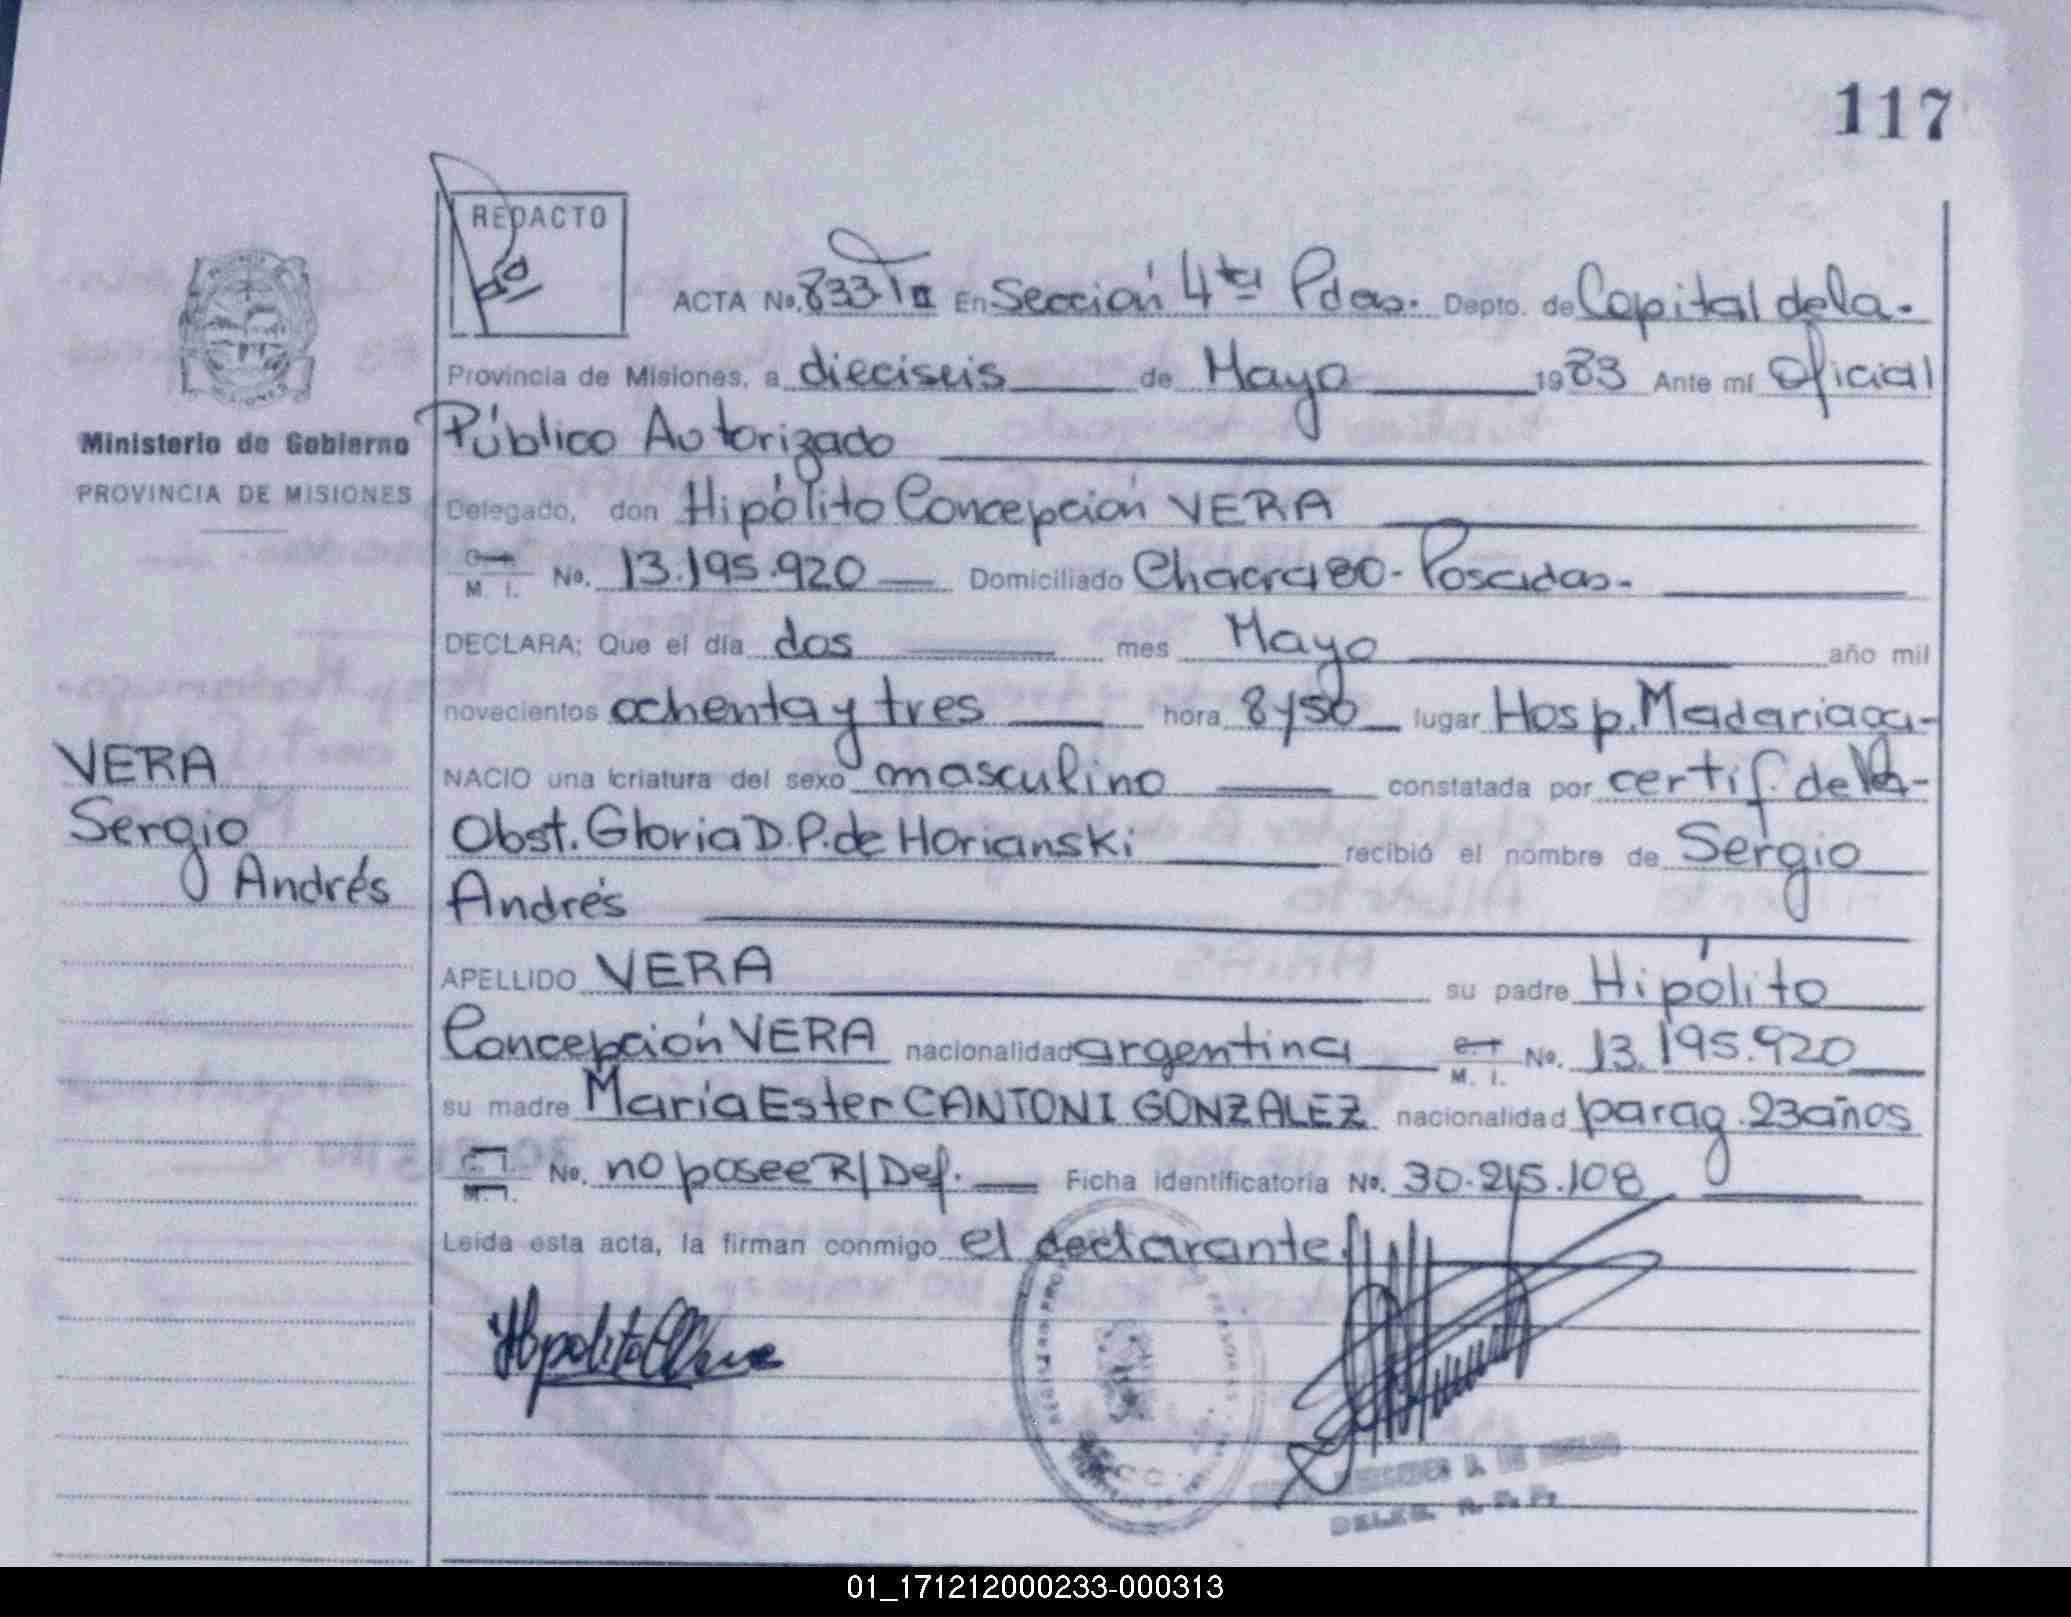 117
REDACTO
ACTA No. 833 T II En Sección 4ta Pdas. Depto. de Capital de la.
Provincia de Misiones, a dieciseis de Mayo 1983 Ante mí Oficial
Ministerio de Gobierno
Público Autorizado
PROVINCIA DE MISIONES
Delegado, don Hipólito Concepción VERA
M. I. No. 13.195.920 Domiciliado Chacra 80 - Posadas.
DECLARA; Que el día dos mes Mayo año mil
novecientos ochenta y tres hora 8 y 50 lugar Hosp. Madariaga-
VERA
NACIO una criatura del sexo masculino constatada por certif. de la-
Sergio
Obst. Gloria D. P. de Horianski recibió el nombre de Sergio
Andrés
Andrés
APELLIDO VERA su padre Hipólito
Concepción VERA nacionalidad argentina M. I. No. 13.195.920
su madre María Ester CANTONI GONZALEZ nacionalidad parag. 23 años
M. I. No. no posee R/Def. Ficha identificatoria No. 30.215.108
Leída esta acta, la firman conmigo el declarante.
Hipolito C Vera
01_171212000233-000313